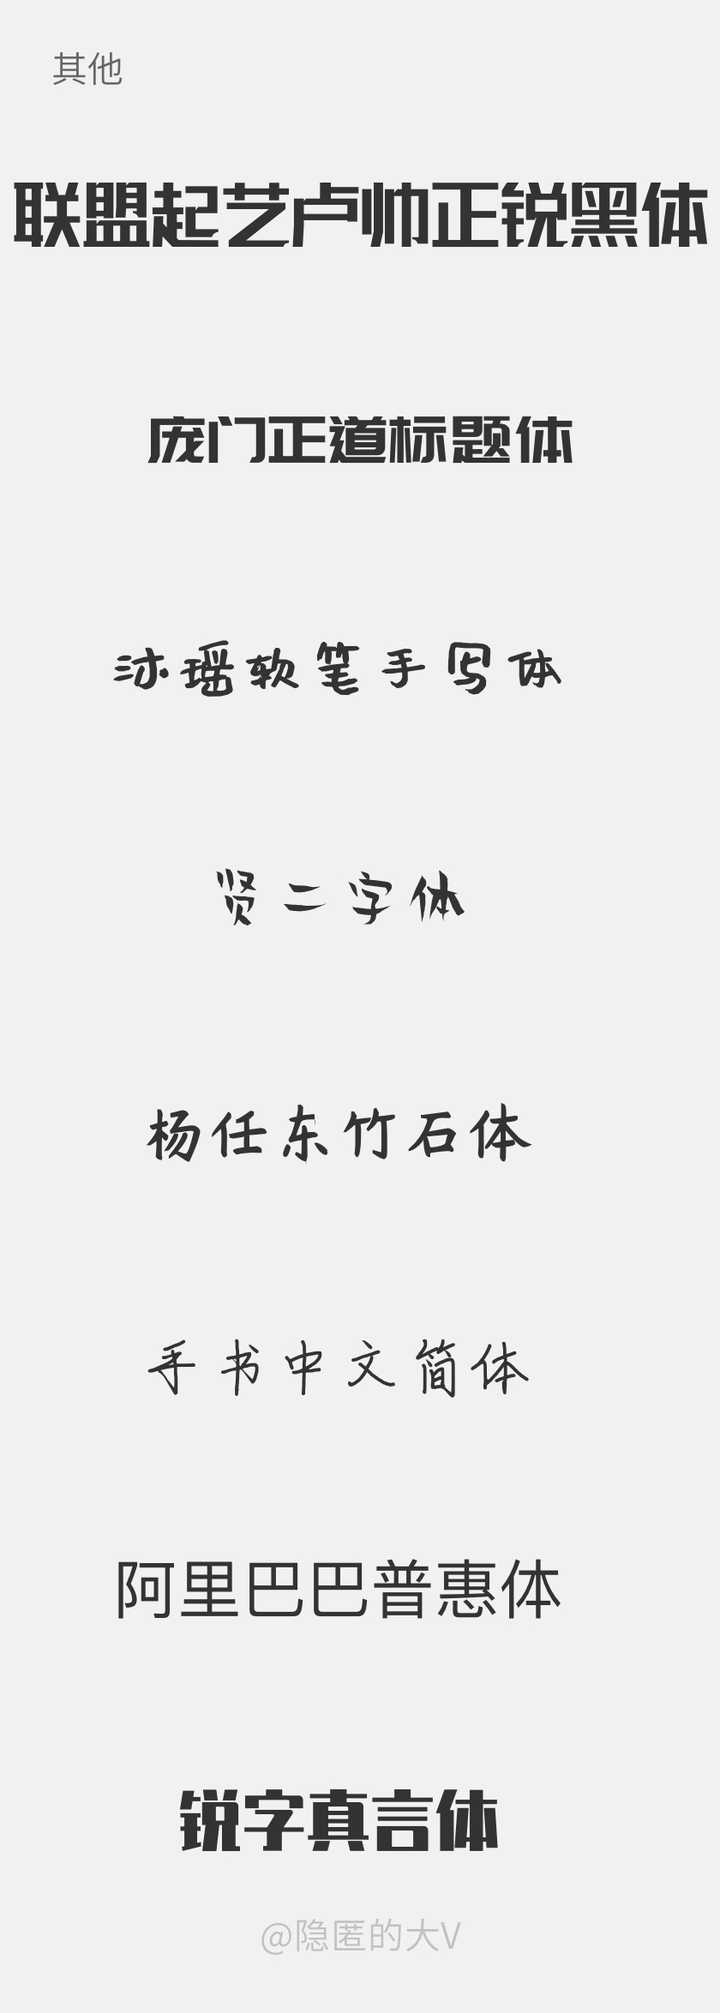 其他
联盟起艺卢帅正锐黑体
庞门正道标题体
沐瑶软笔手写体
贤二字体
杨任东竹石体
手书中文简体
阿里巴巴普惠体
锐字真言体
@隐匿的大V